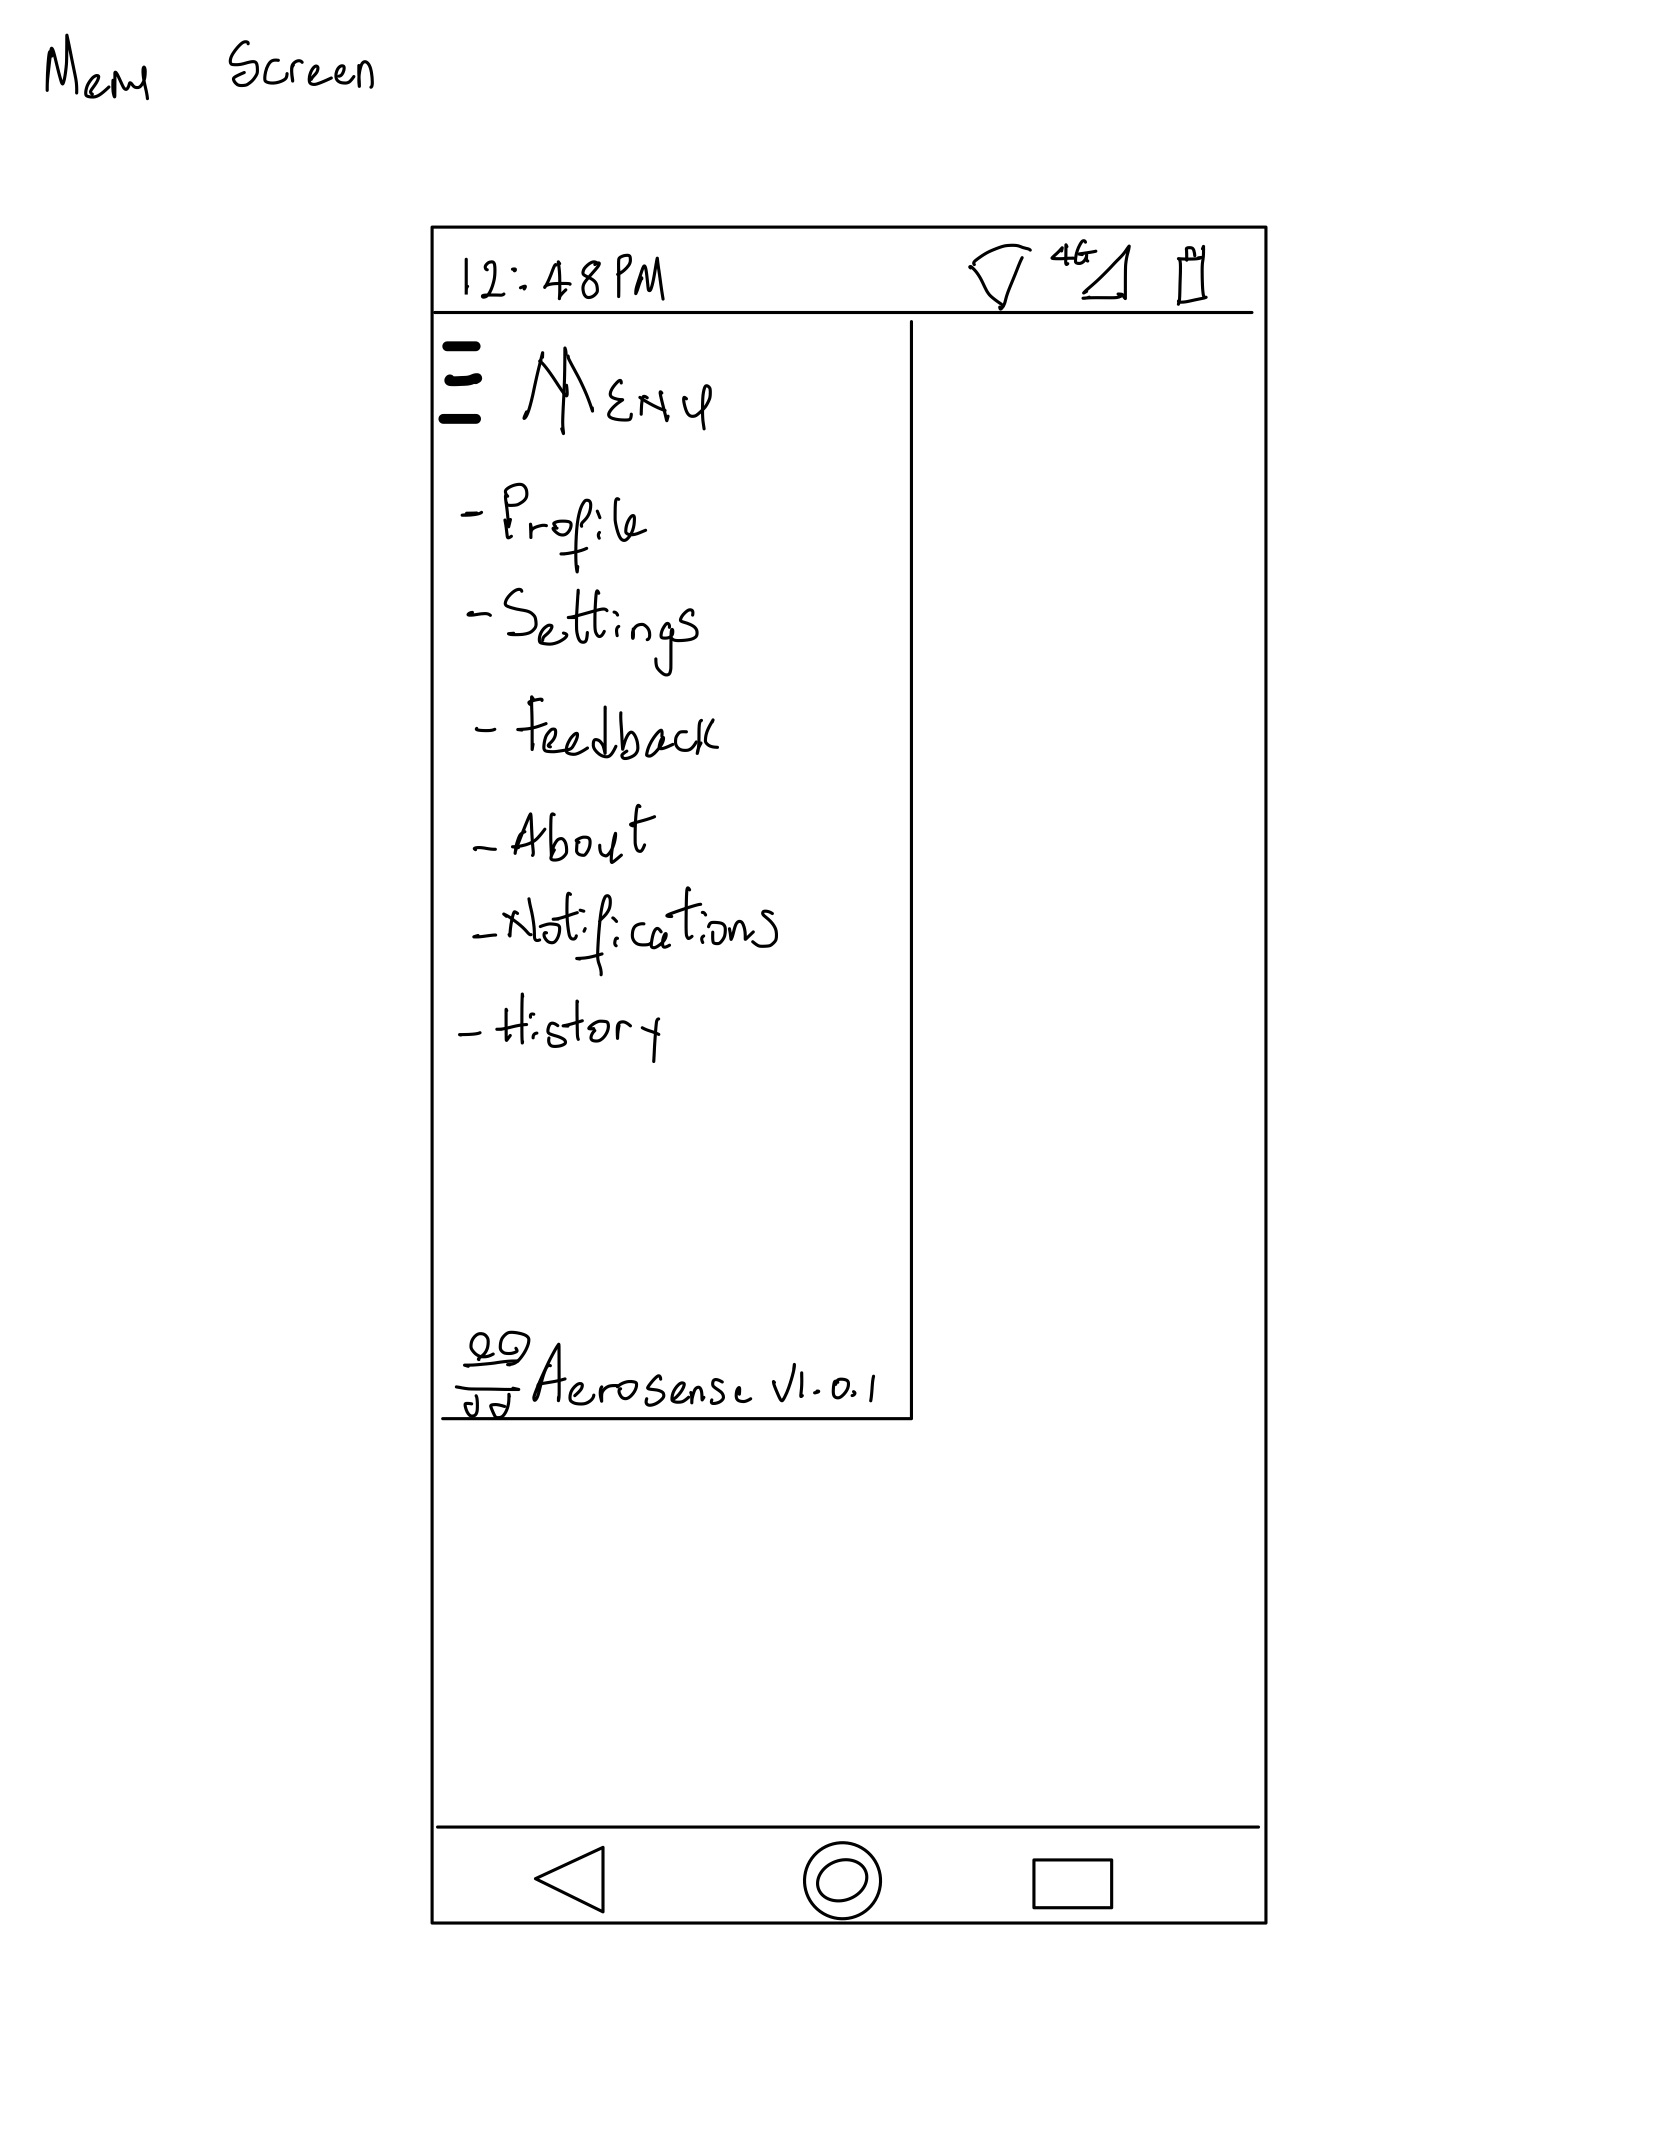 Menu Screen
12:48PM 4G
Menu
- Profile
- Settings
- Feedback
- About
- Notifications
- History
Aerosense V1.0.1